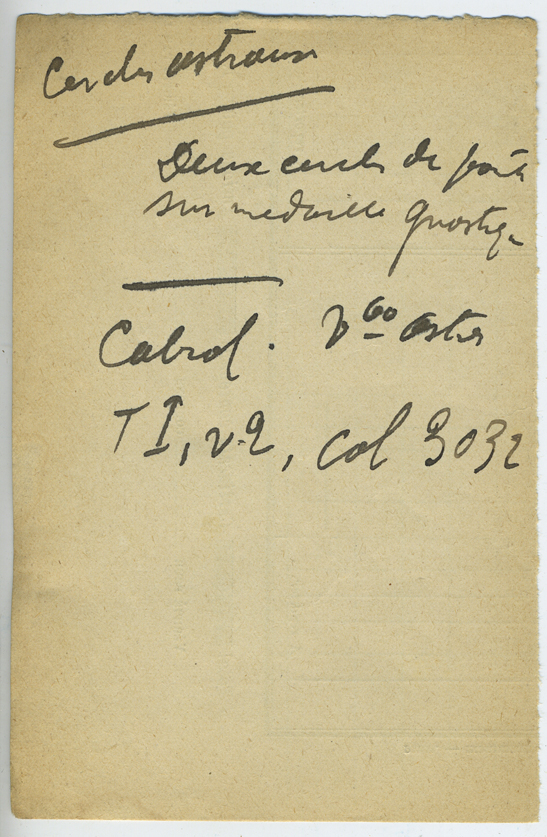 Cercles astraux
Deux cercles de
sur medaille gnostiq
Cabrol. Vbo Astres
T I, v. 2, col 3032